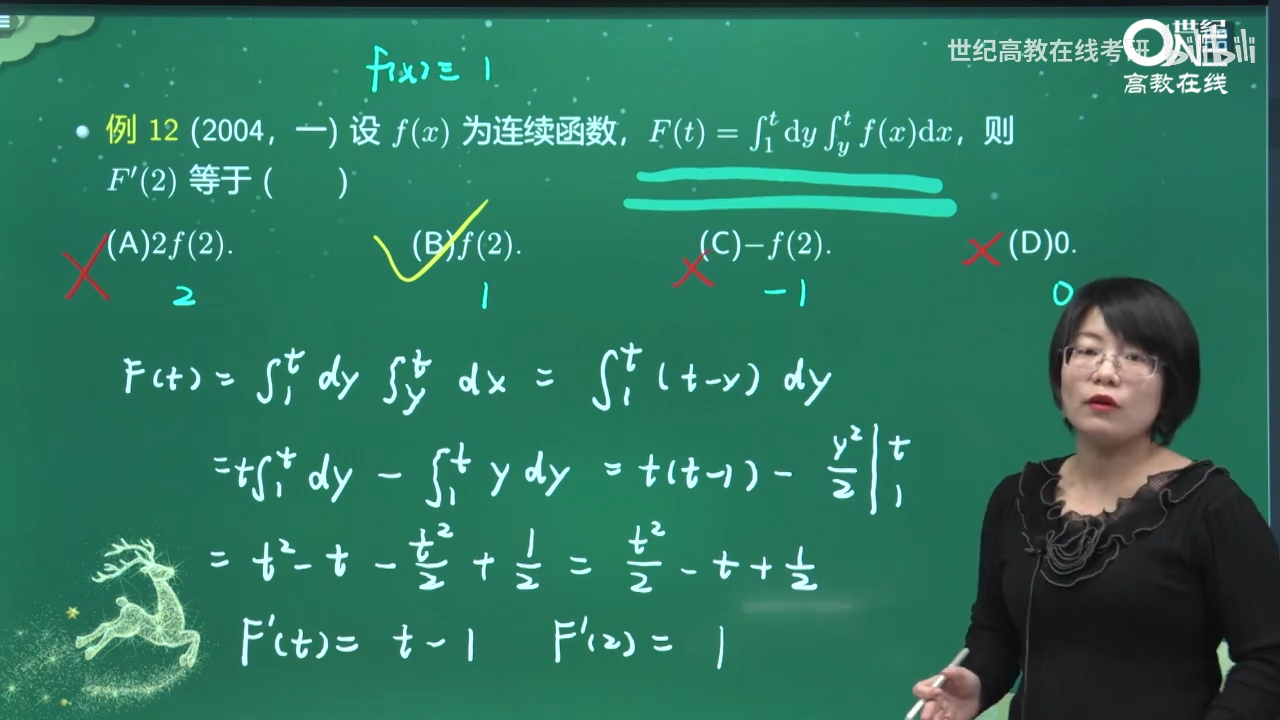 世纪高教在线考研 bilibili
世纪
高教在线
f(x)≡1
• 例 12 (2004，一) 设 f(x) 为连续函数，F(t) = ∫₁ᵗ dy ∫ᵧᵗ f(x)dx，则
F′(2) 等于 (  )
(A)2f(2). (B)f(2). (C)−f(2). (D)0.
2 1 −1 0
F(t) = ∫₁ᵗ dy ∫ᵧᵗ dx = ∫₁ᵗ (t−y) dy
= t∫₁ᵗ dy − ∫₁ᵗ y dy = t(t−1) − y²/2 |₁ᵗ
= t² − t − t²/2 + 1/2 = t²/2 − t + 1/2
F′(t) = t − 1 F′(2) = 1